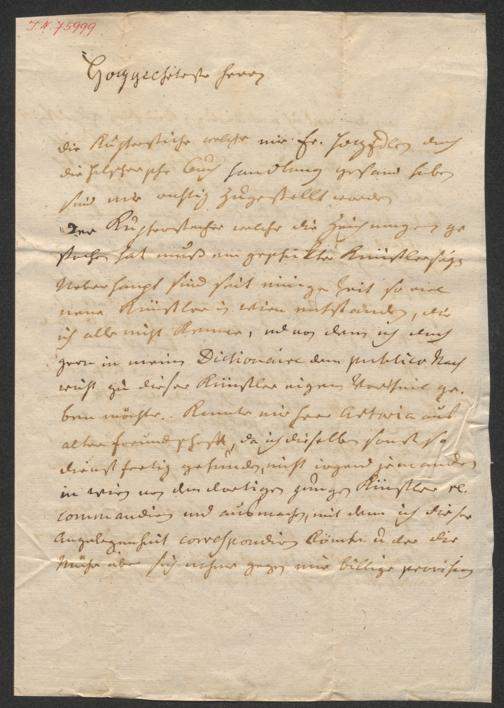 I.N. 75999
Hochgeehrteste Herrn
die Kupferstiche welche mir Er. Hochedlen durch
die Hilschersche Buch handlung gesand haben
sind mir richtig zugestellt worden
Der Kupferstecher welche die Zeichnungen ge
stochen hat muß ein geschickter Künstler seyn
Ueberhaupt sind seit einiger Zeit so viel
neue Künstler in Wien entstanden, die
ich alle nicht kenne, und von denen ich doch
gern in meine Dictionaire dem publico Nach
richt zu dieser Künstler eigen Vortheil ge
ben möchte. Konnte mir Herr Artaria aus
alter Freundschaft, da ich dieselben sonst so
dienstfertig gefunden, nicht irgend jemanden
in Wien von den dortigen jungen Künstler re
commandiren und ausmachen, mit dem ich dieser
Angelegenheit correspondiren könte u der die
Mühe über sich nehme gegen eine billige provision